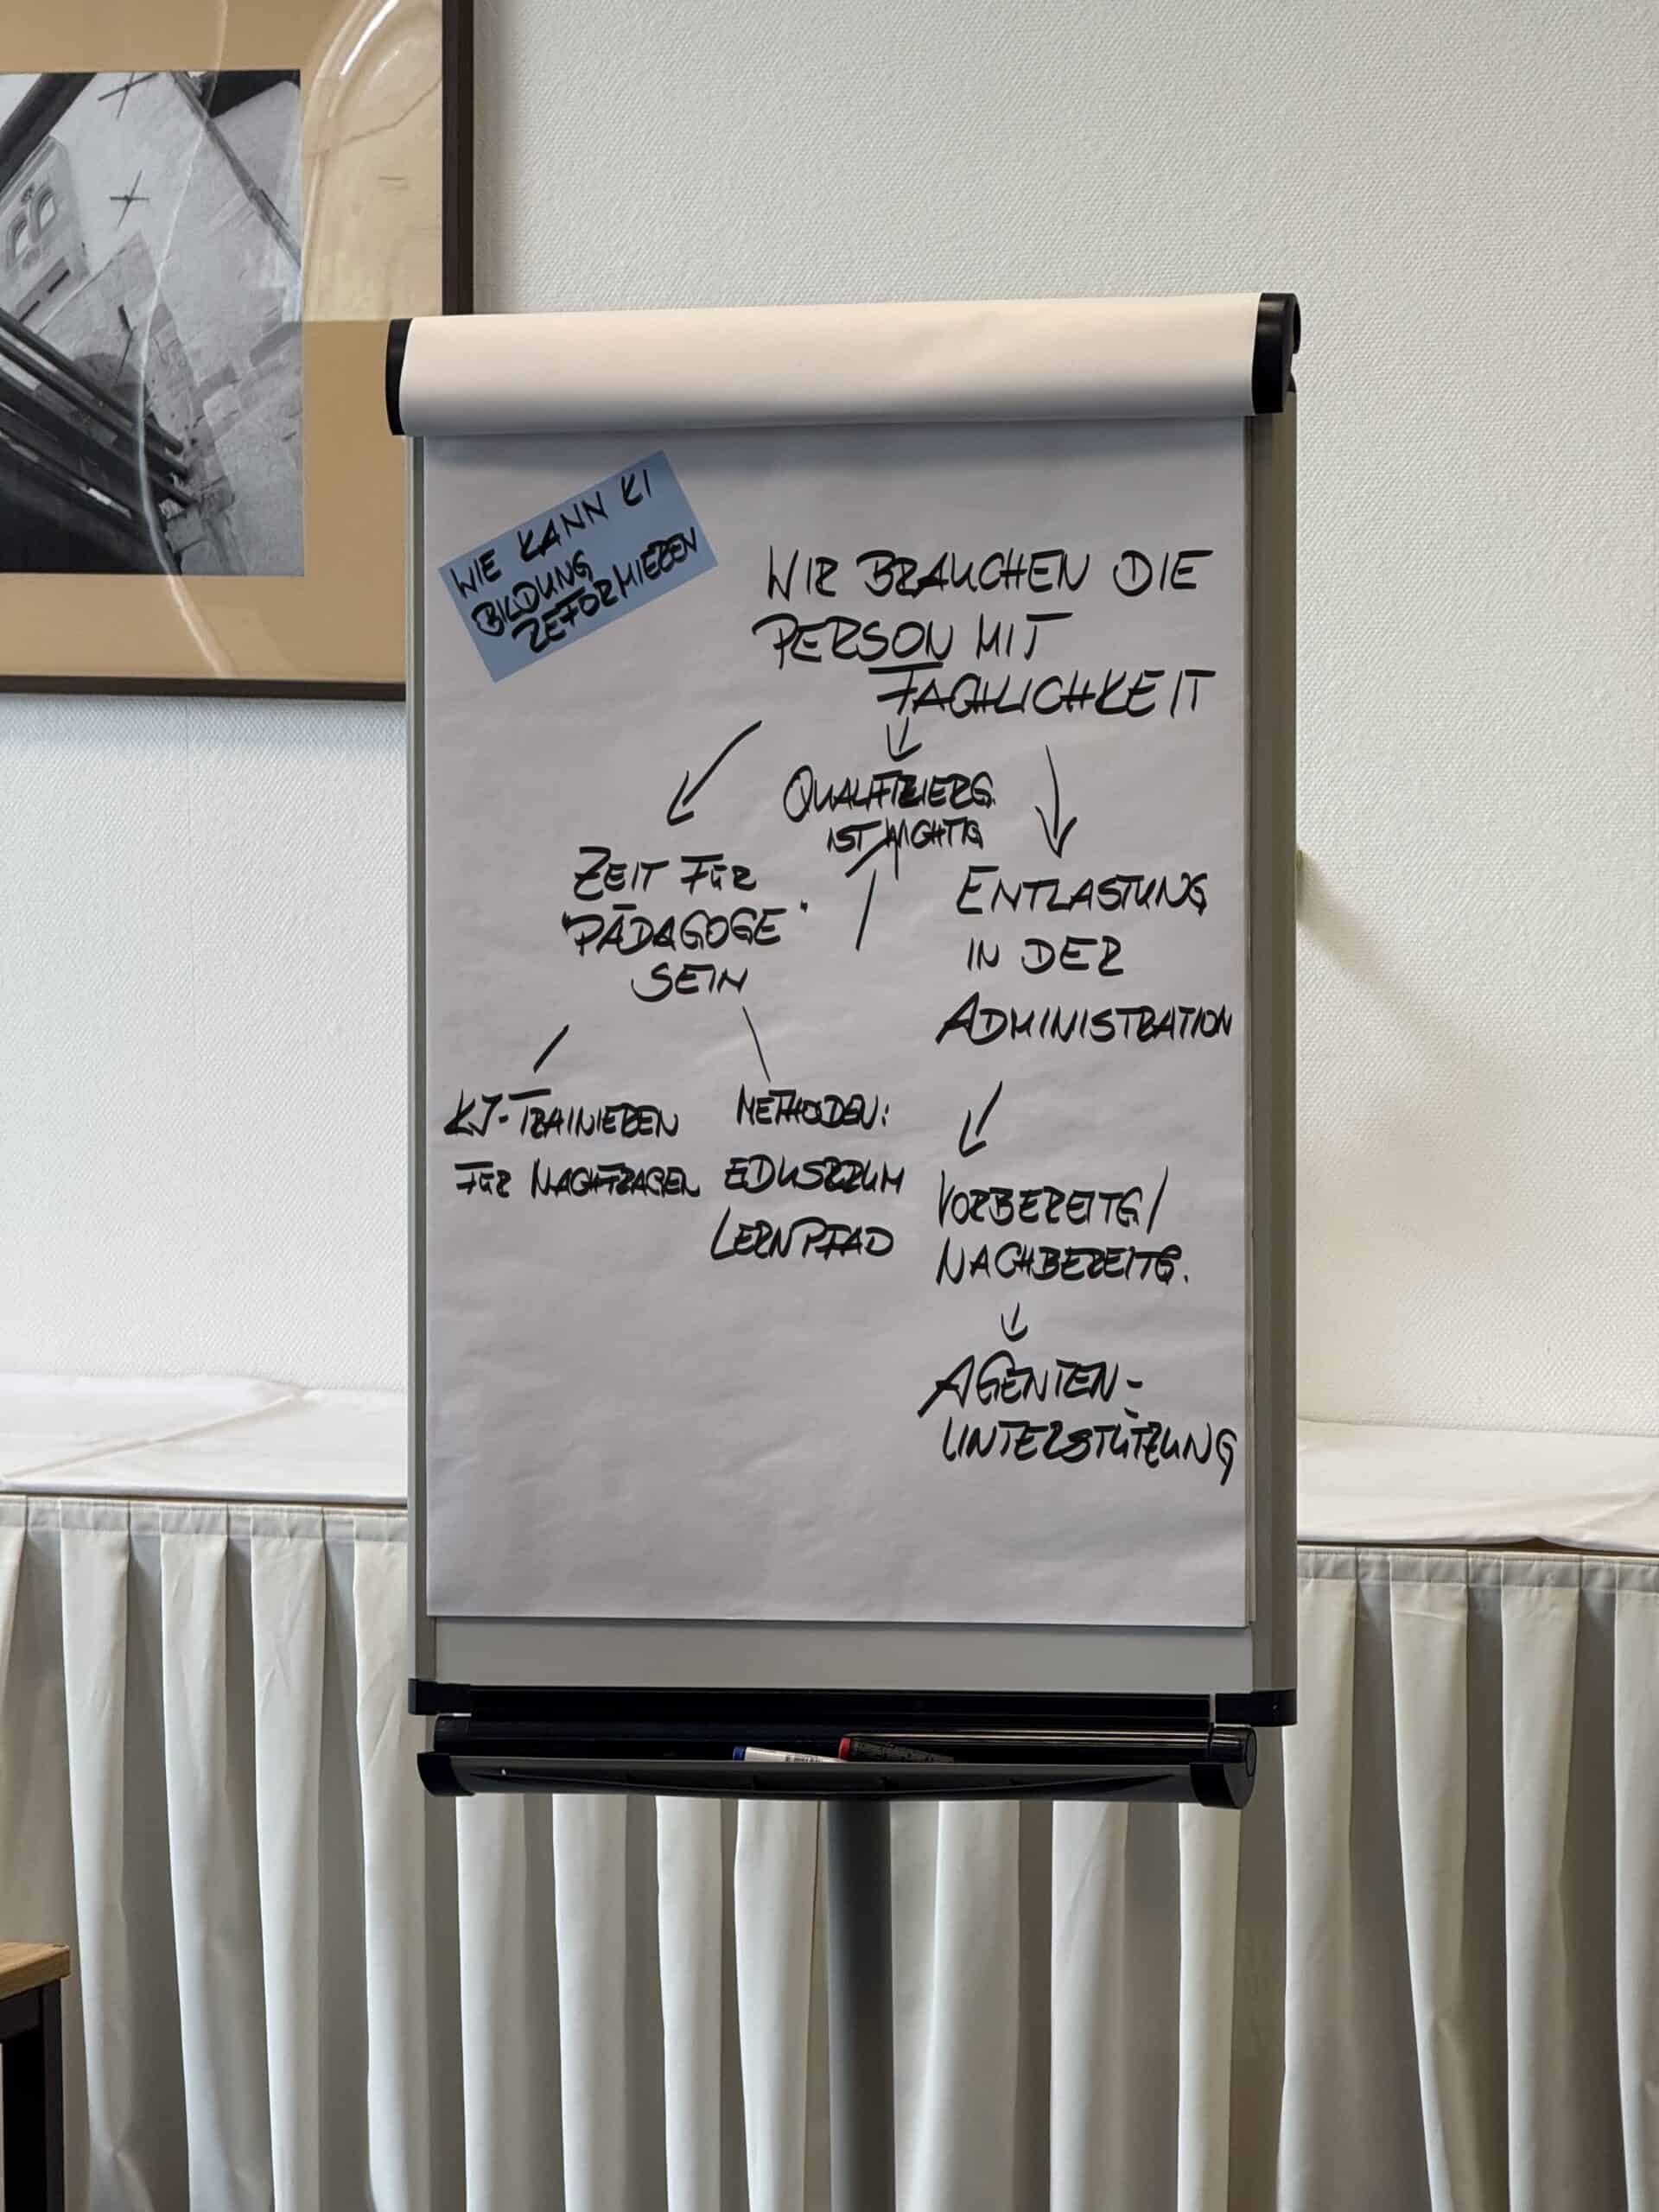 WIE KANN KI
BILDUNG
REFORMIEREN
WIR BRAUCHEN DIE
PERSON MIT
FACHLICHKEIT
QUALIFIZIERG.
IST WICHTIG
ZEIT FÜR
"PÄDAGOGE"
SEIN
ENTLASTUNG
IN DER
ADMINISTRATION
KI-TRAINIEREN
FÜR NACHFRAGEN
METHODEN:
EDUSCRUM
LERNPFAD
VORBEREITG/
NACHBEREITG.
AGENTEN-
UNTERSTÜTZUNG